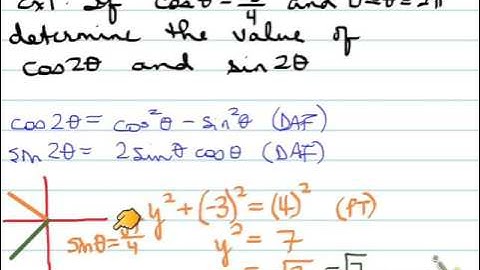 Ex1. If cosθ =
4
determine the value of
cos2θ and sin2θ
cos2θ = cos²θ - sin²θ (DAF)
sin2θ = 2sinθ cosθ (DAF)
y² + (-3)² = (4)² (PT)
sinθ =
4
y² = 7